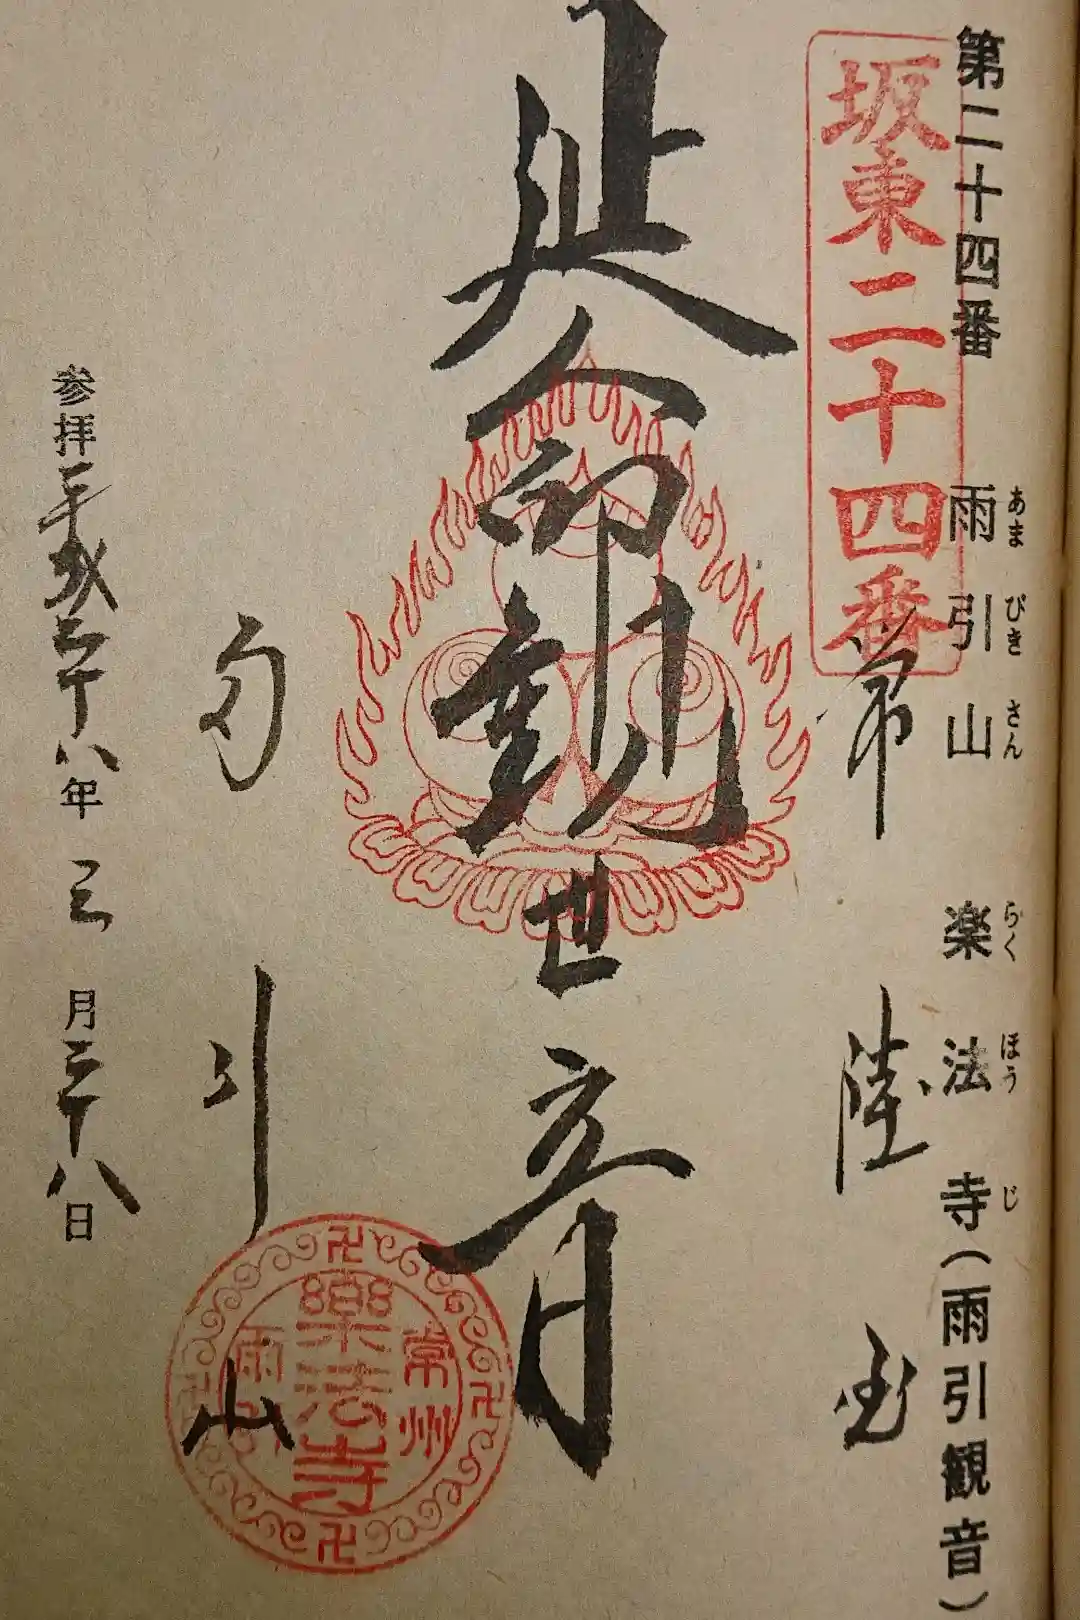 あまびきさん らくほうじ
第二十四番 雨引山 楽法寺(雨引観音)
坂東二十四番
常陸国
延命観世音
雨引山
常州
樂法寺
雨引
参拝平成二十八年三月二十八日